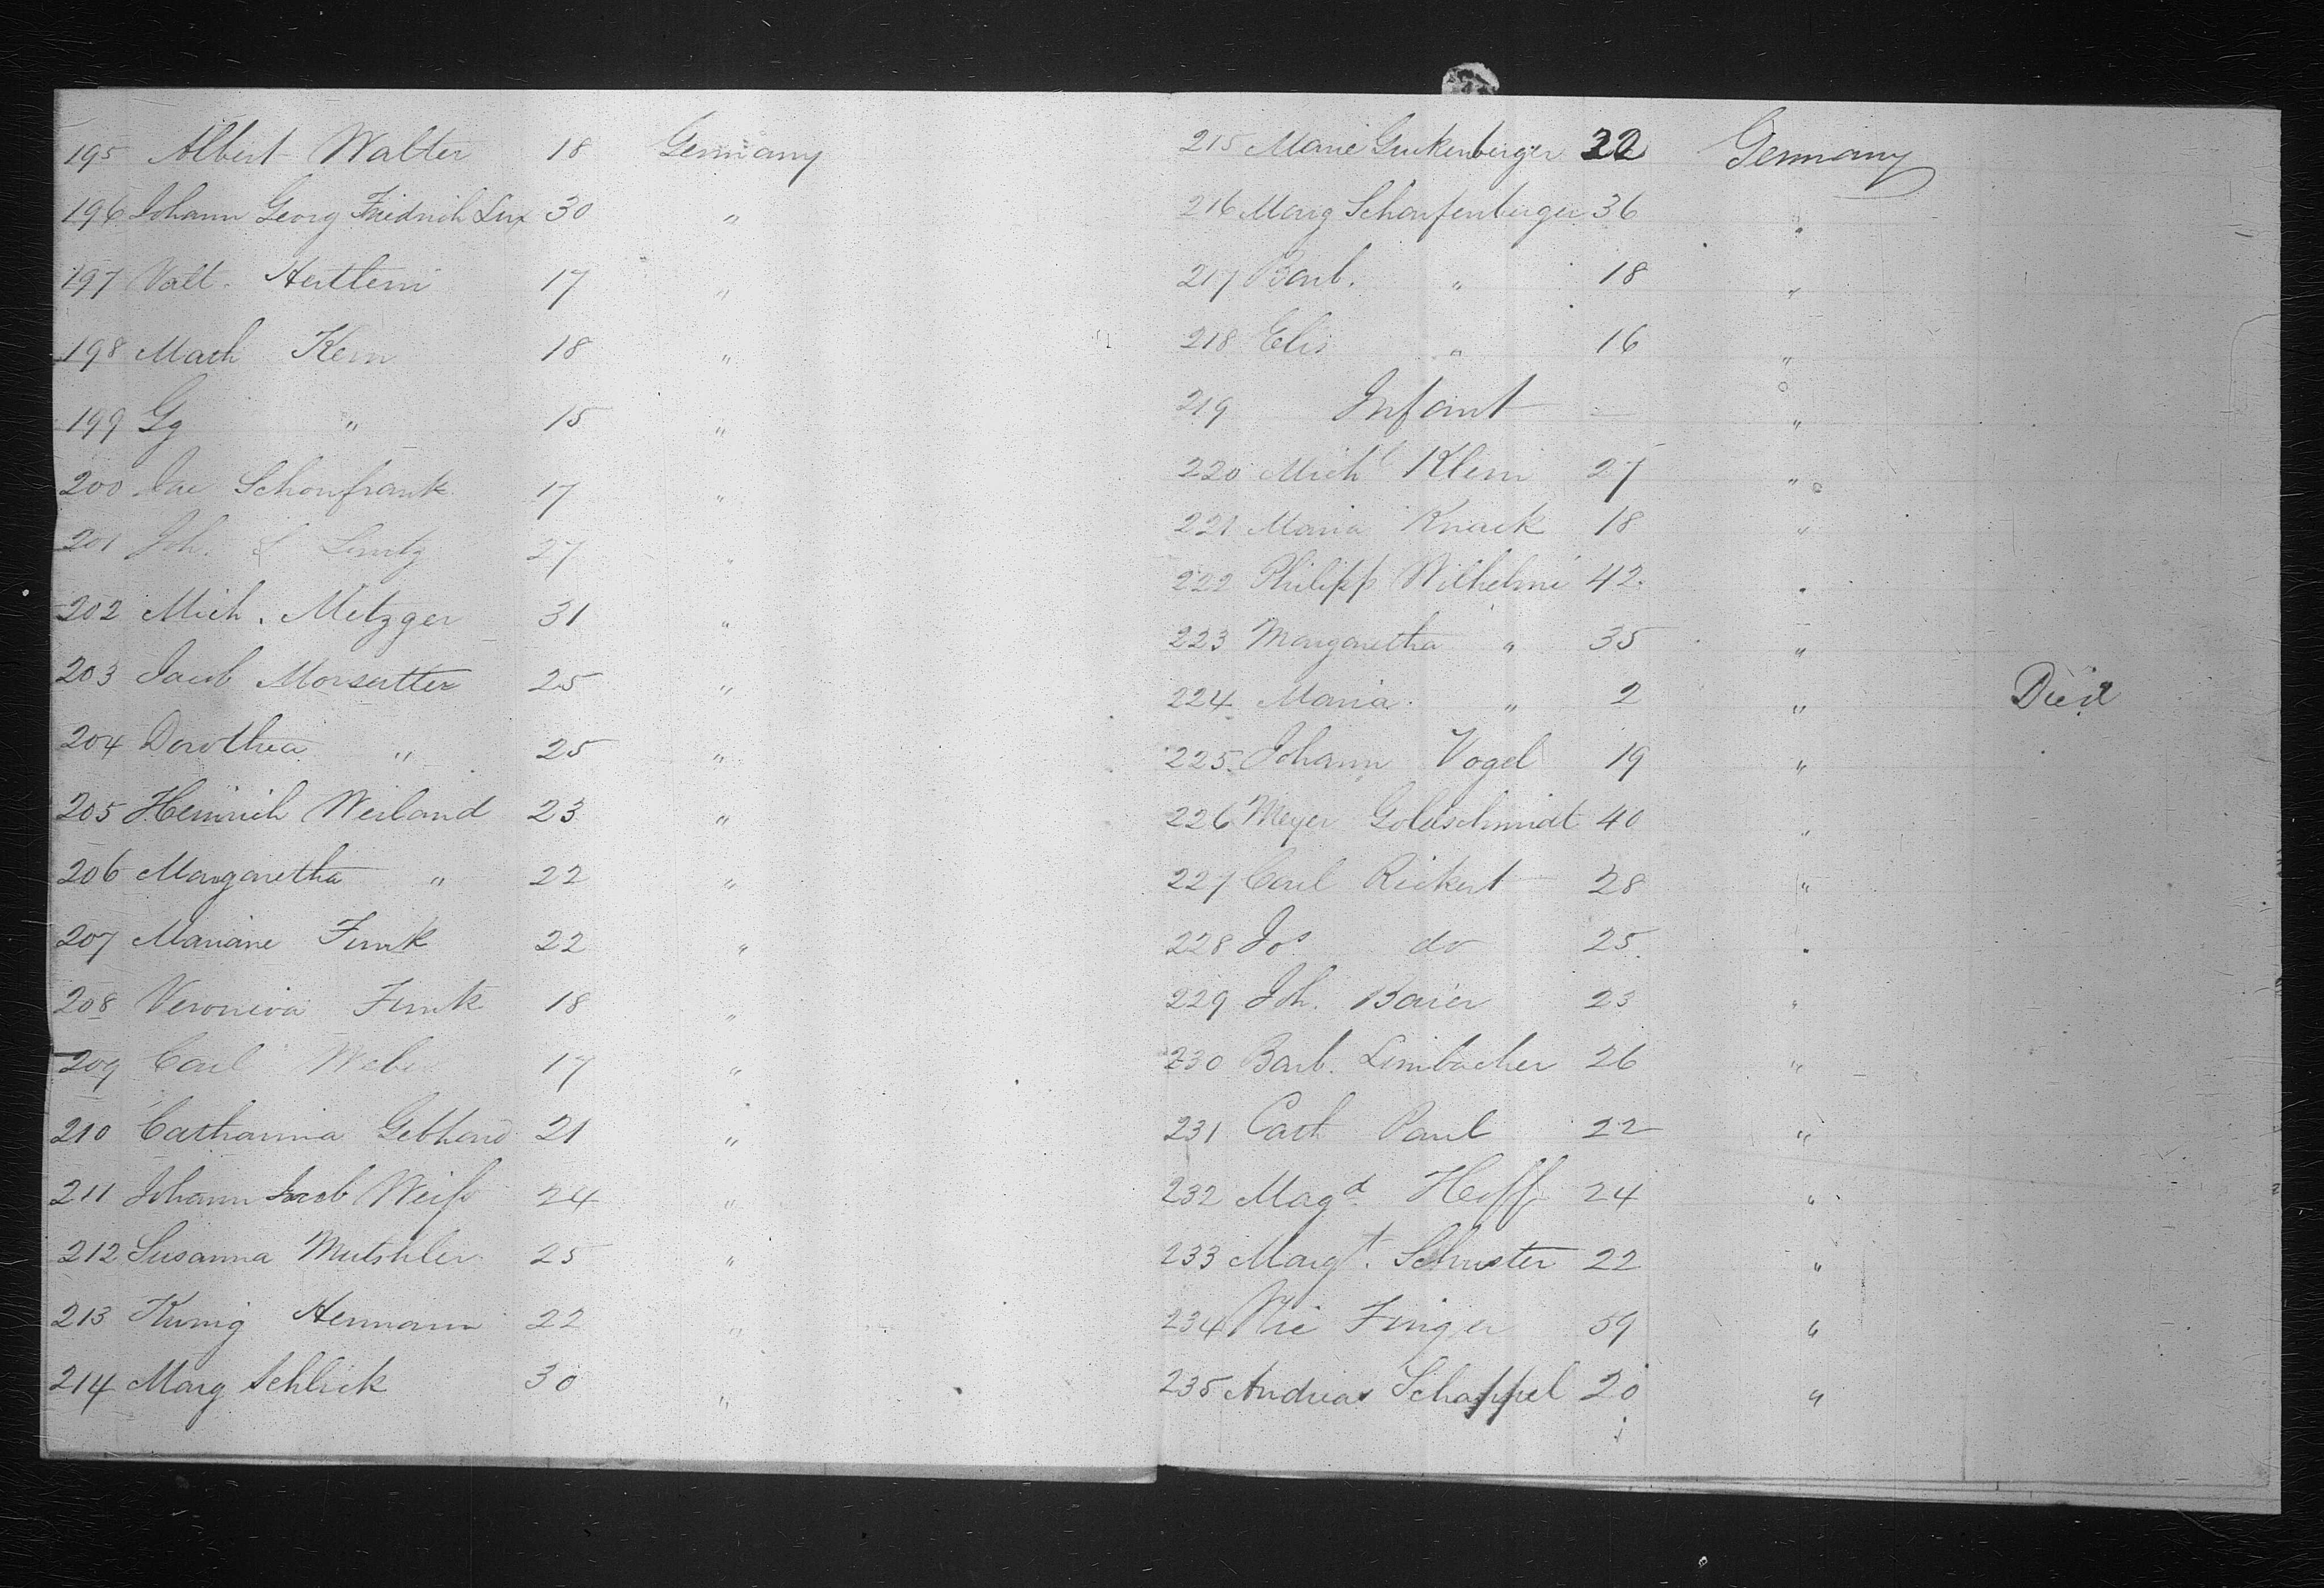 195 Albert Walter 18 Germany
196 Johann Georg Friedrich Lux 30 "
197 Valt. Hertlein 17 "
198 Math Kern 18 "
199 Gg " 15 "
200 Jac Schonfrank 17 "
201 Joh. Lentz 27 "
202 Mich. Metzger 31 "
203 Jacob Morsutter 25 "
204 Dorothea " 25 "
205 Heinrich Weiland 23 "
206 Margaretha " 22 "
207 Mariane Funk 22 "
208 Veronica Funk 18 "
209 Carl Weber 17 "
210 Catharina Gebhard 21 "
211 Johann Jacob Weiß 24 "
212 Susanna Mutshler 25 "
213 Kunig Hermann 22 "
214 Marg Schlick 30 "
215 Marie Guckenberger 22 Germany
216 Marg Scharfenberger 36 "
217 Barb. " 18 "
218 Elis " 16 "
219 Infant — "
220 Michl Klein 27 "
221 Maria Knack 18 "
222 Philipp Wilhelmi 42 "
223 Margaretha " 35 "
224 Maria " 2 " Died
225 Johann Vogel 19 "
226 Meyer Goldschmidt 40 "
227 Carl Rickert 28 "
228 Jos do 25 "
229 Joh. Baier 23 "
230 Barb. Limbacher 26 "
231 Cath Paul 22 "
232 Magd Heff 24 "
233 Margt. Schuster 22 "
234 Nic Finger 59 "
235 Andreas Schappel 20 "